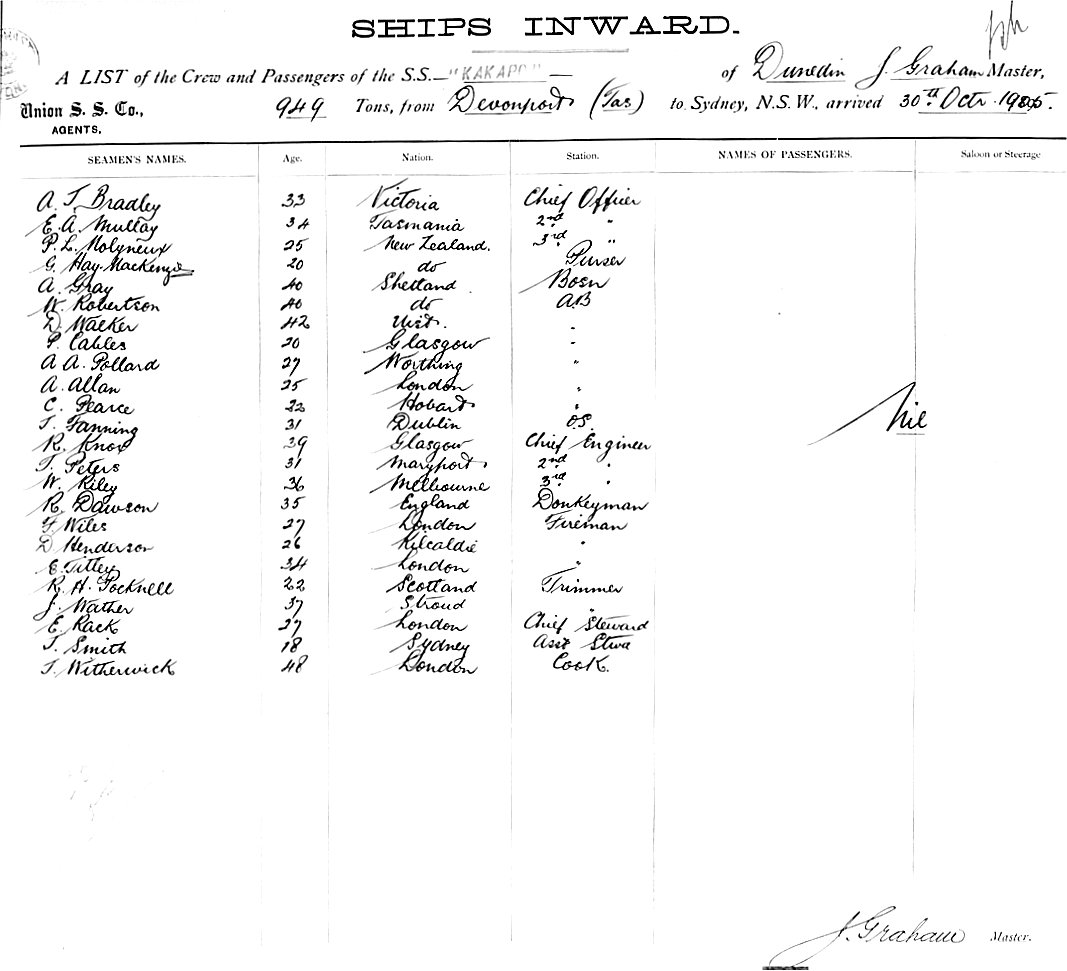 SHIPS INWARD.
A LIST of the Crew and Passengers of the S.S.—"KAKAPO"— of Dunedin J Graham Master,
Union S. S. Co., 949 Tons, from Devonport (Tas) to Sydney, N.S.W., arrived 30th Octr 1905.
AGENTS.
SEAMEN'S NAMES. Age. Nation. Station. NAMES OF PASSENGERS. Saloon or Steerage
A. T. Bradley 33 Victoria Chief Officer
E. A. Mullay 34 Tasmania 2nd "
P. L. Molyneux 25 New Zealand. 3rd "
G. Hay-MacKenzie 20 do Purser
A. Gray 40 Shetland Bosn
W. Robertson 40 do AB
D. Walker 42 Uist. "
P. Cables 20 Glasgow "
A A. Pollard 27 Worthing "
A. Allan 25 London "
C. Pearce 22 Hobart "
T. Fanning 31 Dublin O.S. Nil
R. Knox 39 Glasgow Chief Engineer
T. Peters 31 Maryport 2nd "
W. Riley 36 Melbourne 3rd "
R. Dawson 35 England Donkeyman
F. Wiles 27 London Fireman
D Henderson 26 Kilcaldie "
E. Titley 34 London "
R. H. Pocknell 22 Scotland Trimmer
J. Wather 37 Stroud "
E. Rack 27 London Chief Steward
T. Smith 18 Sydney Asst Stwd
T. Witherwick 48 London Cook.
J. Graham Master.